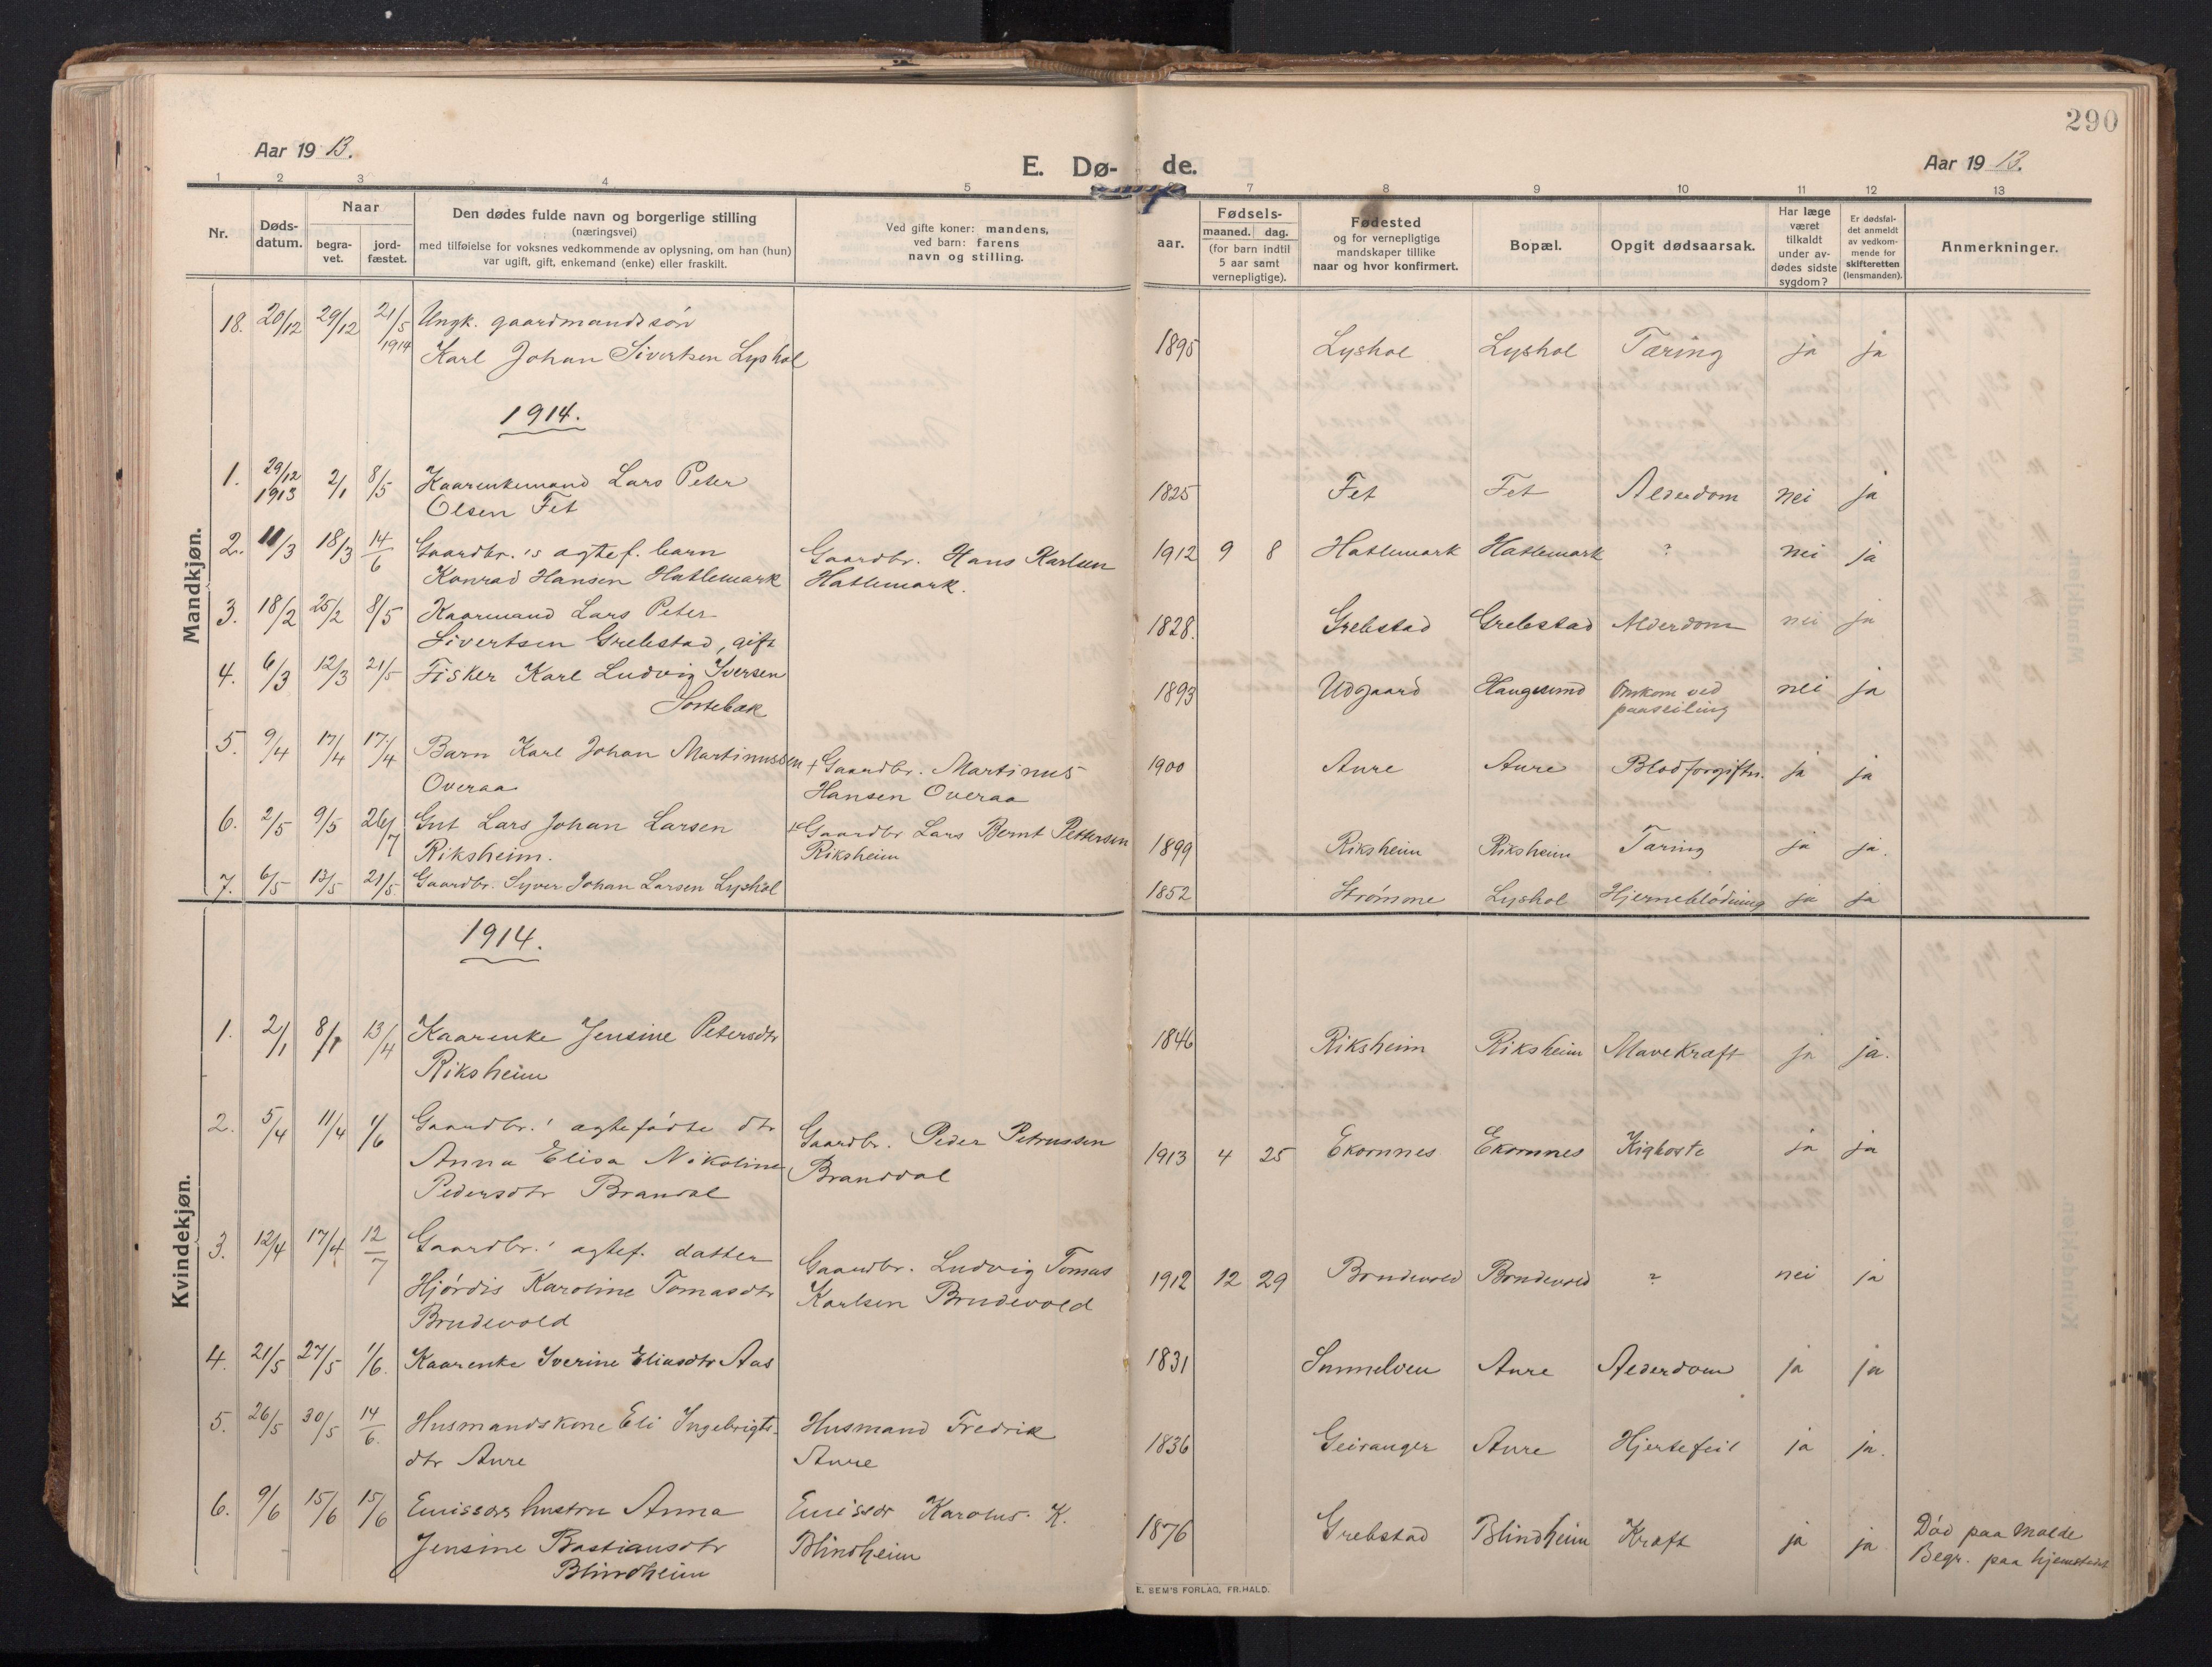 290
Aar 1913.
E. Dø- de.
Aar 1913.
1 2 3 4 5 7 8 9 10 11 12 13
Nr.
Døds-
datum.
Naar
begra-
vet.
jord-
fæstet.
Den dødes fulde navn og borgerlige stilling
(næringsvei)
med tilføielse for voksnes vedkommende av oplysning, om han (hun)
var ugift, gift, enkemand (enke) eller fraskilt.
Ved gifte koner: mandens,
ved barn: farens
navn og stilling.
aar.
Fødsels-
maaned. dag.
(for barn indtil
5 aar samt
vernepligtige).
Fødested
og for vernepligtige
mandskaper tillike
naar og hvor konfirmert.
Bopæl.
Opgit dødsaarsak.
Har læge
været
tilkaldt
under av-
dødes sidste
sygdom?
Er dødsfal-
det anmeldt
av vedkom-
mende for
skifteretten
(lensmanden).
Anmerkninger.
Mandkjøn.
18. 20/12 29/12 21/5 1914 Ungk. gaardmandssøn
Karl Johan Sivertsen Lyshol 1895 Lyshol Lyshol Tæring ja ja
1914.
1. 29/12 1913 2/1 8/5 Kaarenkemand Lars Peter
Olsen Fet 1825 Fet Fet Alderdom nei ja
2. 11/3 18/3 14/6 Gaardbr.'s agtef. barn Gaardbr. Hans Karlsen 1912 9 8 Hatlemark Hatlemark ? nei ja
Konrad Hansen Hatlemark Hatlemark.
3. 18/2 25/2 8/5 Kaarmand Lars Peter
Sivertsen Grebstad, gift 1828. Grebstad Grebstad Alderdom nei ja
4. 6/3 12/3 21/5 Fisker Karl Ludvig Iversen
Sortebæk 1893 Udgaard Haugesund Omkom ved nei ja
paaseiling
5. 9/4 17/4 17/4 Barn Karl Johan Martinussen + Gaardbr. Martinus 1900 Aure Aure Blodforgiftn. ja ja
Overaa Hansen Overaa
6. 2/5 9/5 26/7 Gut Lars Johan Larsen Gaardbr Lars Bernt Pettersen
Riksheim. Riksheim 1899 Riksheim Riksheim Tæring ja ja.
7. 6/5 13/5 21/5 Gaardbr. Syver Johan Larsen Lyshol 1852 Strømme Lyshol Hjerneblødning ja ja
Kvindekjøn.
1914.
1. 2/1 8/1 13/4 Kaarenke Jensine Petersdtr 1846 Riksheim Riksheim Mavekræft ja ja.
Riksheim
2. 5/4 11/4 1/6 Gaardbr.' agtefødte dtr Gaardbr. Peder Petrussen
Anna Elisa Nikoline Branddal 1913 4 25 Ekornnes Ekornnes Kighoste ja ja
Pedersdtr Brandal
3. 12/4 17/4 12/7 Gaardbr.' agtef. datter Gaardbr. Ludvig Tomas
Hjørdis Karoline Tomasdtr Karlsen Brudevold 1912 12 29 Brudevold Brudevold ? nei ja
Brudevold
4. 21/5 27/5 1/6. Kaarenke Iverine Eliasdtr Aas 1831 Sunnelven Aure Alderdom ja ja
5. 26/5 30/5 14/6. Husmandskone Eli Ingebrigts- Husmand Fredrik
dtr Aure Aure 1836 Geiranger Aure Hjertefeil ja ja.
6. 9/6 15/6 15/6 Emissærs hustru Anna Emissær Karolus K.
Jensine Bastiansdtr Blindheim 1876 Grebstad Blindheim Kræft ja ja Død paa Molde
Blindheim Begr. paa hjemstedet
E. SEM'S FORLAG, FR.HALD.